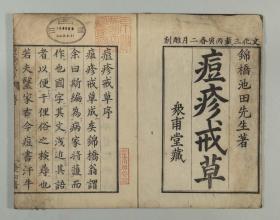 文化三歲丙寅春二月雕刻
錦橋池田先生著
痘疹戒草
衆甫堂藏
痘疹戒草序
痘疹戒草成矣錦橋翁謂
余曰斯編為病家將護而
作也國字其文淺近其語
者以便于俚俗之檢尋也
若夫醫家古今痘書汗牛